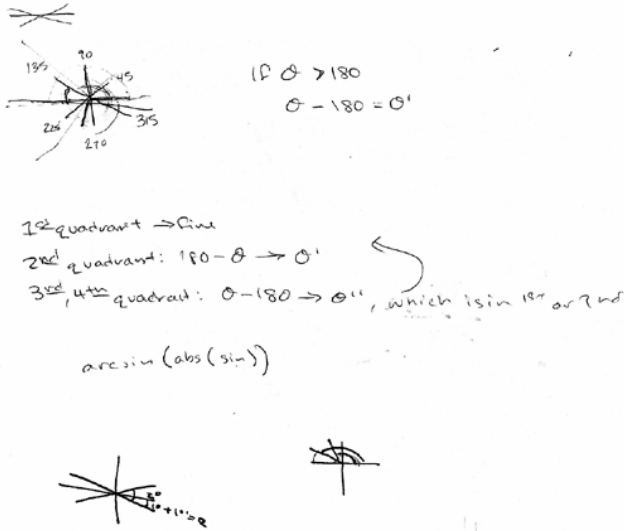 90
135
45
315
270
If θ > 180
θ - 180 = θ'
1st quadrant → fine
2nd quadrant: 180 - θ → θ'
3rd, 4th quadrant: θ - 180 → θ'', which is in 1st or 2nd
arcsin(abs(sin))